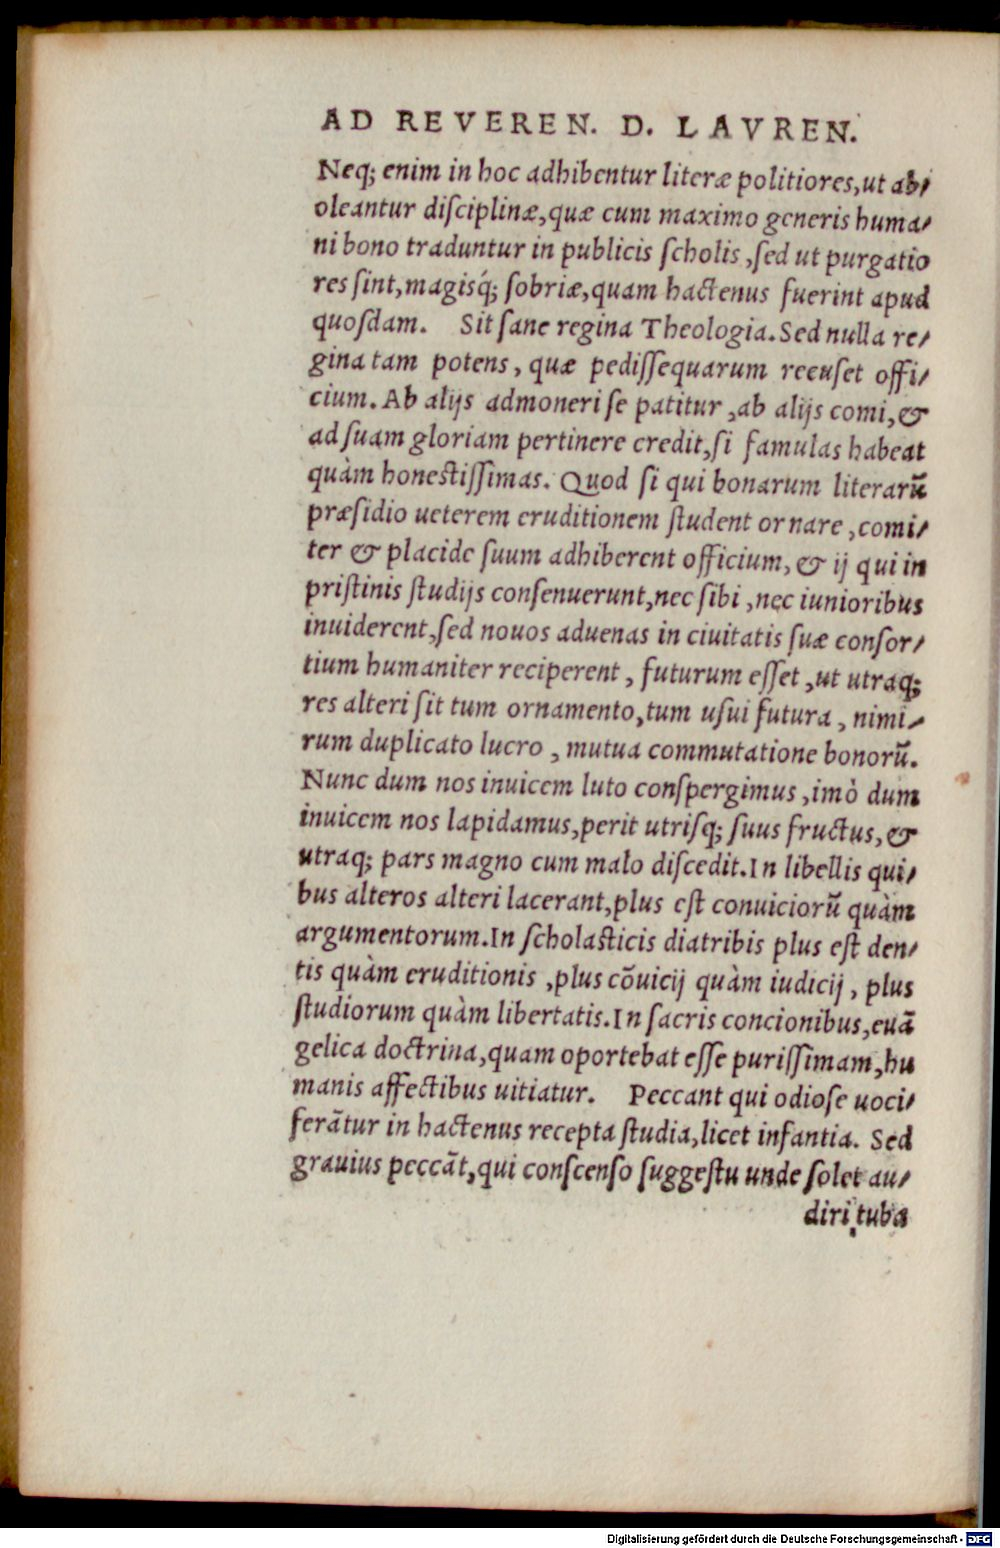 AD REVEREN. D. LAVREN.
Neq; enim in hoc adhibentur literæ politiores, ut ab-
oleantur diſciplinæ, quæ cum maximo generis huma-
ni bono traduntur in publicis ſcholis, ſed ut purgatio
res ſint, magisq́; ſobriæ, quam hactenus fuerint apud
quoſdam. Sit ſane regina Theologia. Sed nulla re-
gina tam potens, quæ pediſſequarum recuſet offi-
cium. Ab alijs admoneri ſe patitur, ab alijs comi, &
ad ſuam gloriam pertinere credit, ſi famulas habeat
quàm honestiſſimas. Quod ſi qui bonarum literarũ
præſidio ueterem eruditionem ſtudent ornare, comi-
ter & placide ſuum adhiberent officium, & ij qui in
priſtinis ſtudijs conſenuerunt, nec ſibi, nec iunioribus
inuiderent, ſed nouos aduenas in ciuitatis ſuæ conſor-
tium humaniter reciperent, futurum eſſet, ut utraq;
res alteri ſit tum ornamento, tum uſui futura, nimi-
rum duplicato lucro, mutua commutatione bonorũ.
Nunc dum nos inuicem luto conſpergimus, imò dum
inuicem nos lapidamus, perit utriſq; ſuus fructus, &
utraq; pars magno cum malo diſcedit. In libellis qui-
bus alteros alteri lacerant, plus eſt conuiciorũ quàm
argumentorum. In ſcholaſticis diatribis plus eſt den-
tis quàm eruditionis, plus cõuicij quàm iudicij, plus
ſtudiorum quàm libertatis. In ſacris concionibus, euã
gelica doctrina, quam oportebat eſſe puriſſimam, hu
manis affectibus uitiatur. Peccant qui odioſe uoci-
ferãtur in hactenus recepta ſtudia, licet infantia. Sed
grauius peccãt, qui conſcenſo ſuggeſtu unde ſolet au-
diri tuba
Digitalisierung gefördert durch die Deutsche Forschungsgemeinschaft - DFG